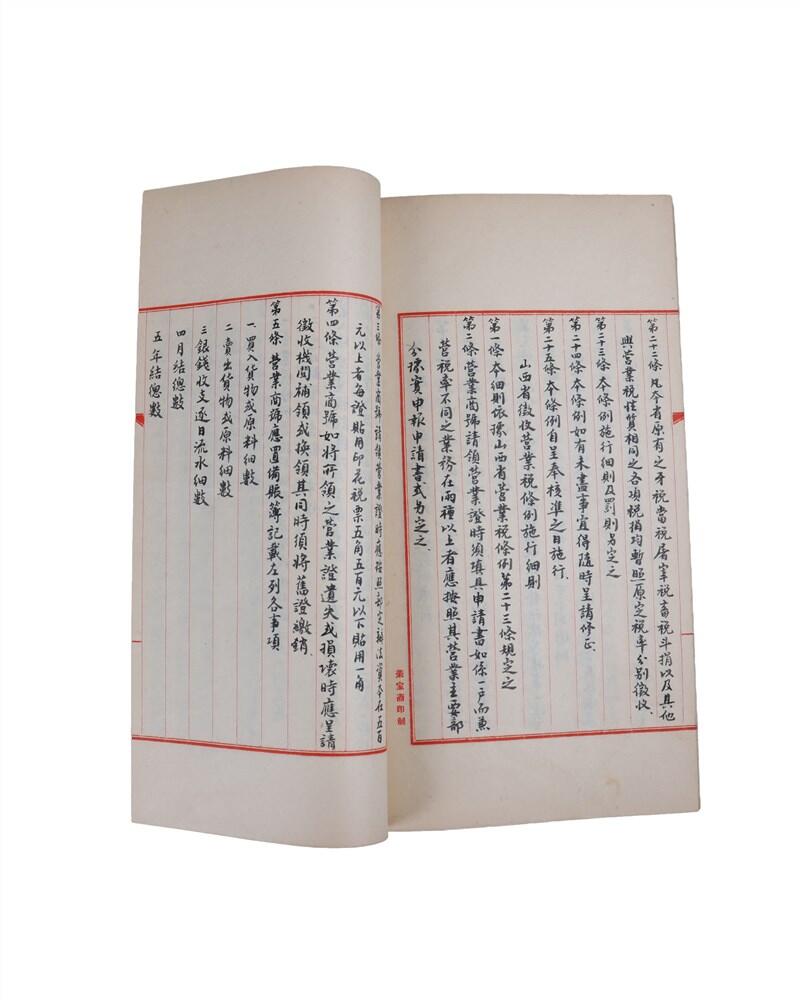 第二十二條 凡本省原有之牙税當税屠宰税畜税斗捐以及其他
與营業税性質相同之各項税捐均暫照原定税率分别徵收
第二十三條 本條例施行細則及罰則另定之
第二十四條 本條例如有未盡事宜得隨時呈請修正
第二十五條 本條例自呈奉核準之日施行
山西省徵收营業税條例施行細則
第一條 本細則依據山西省营業税條例第二十三條規定之
第二條 营業商號請領营業證時須填具申請書如係一戸而兼
营税率不同之業務在兩種以上者應按照其营業主要部
分據實申報申請書式另定之
榮宝齋印制
第三條 营業商號請領营業證時應按照部定辦法資本在五百
元以上者每證貼用印花税票五角五百元以下貼用一角
第四條 营業商號如將所領之营業證遺失或損壞時應呈請
徵收機関補領或換領其同時須將舊證繳銷
第五條 营業商號應置備賬簿記載左列各事項
一 買入貨物或原料細數
二 賣出貨物或原料細數
三 銀錢收支逐日流水細數
四 月結總數
五 年結總數